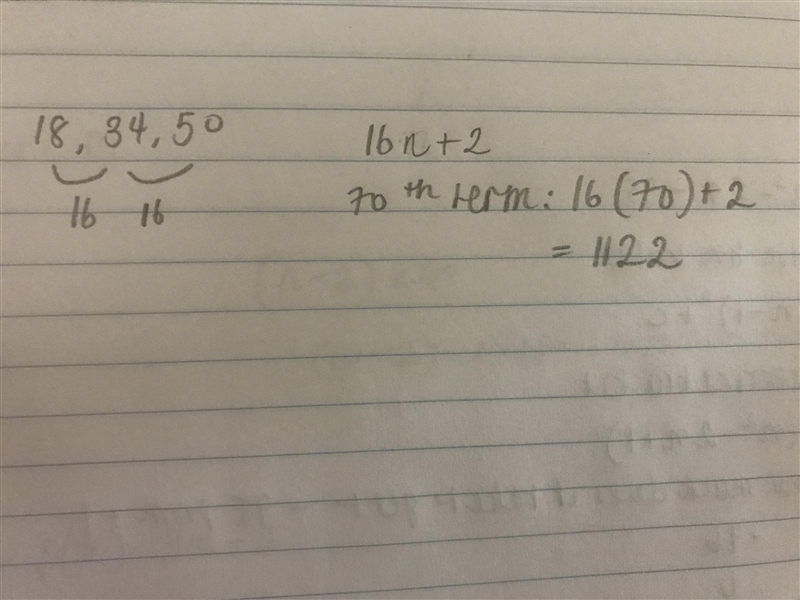 18, 34, 50
16 16
16n+2
70th term: 16(70)+2
= 1122